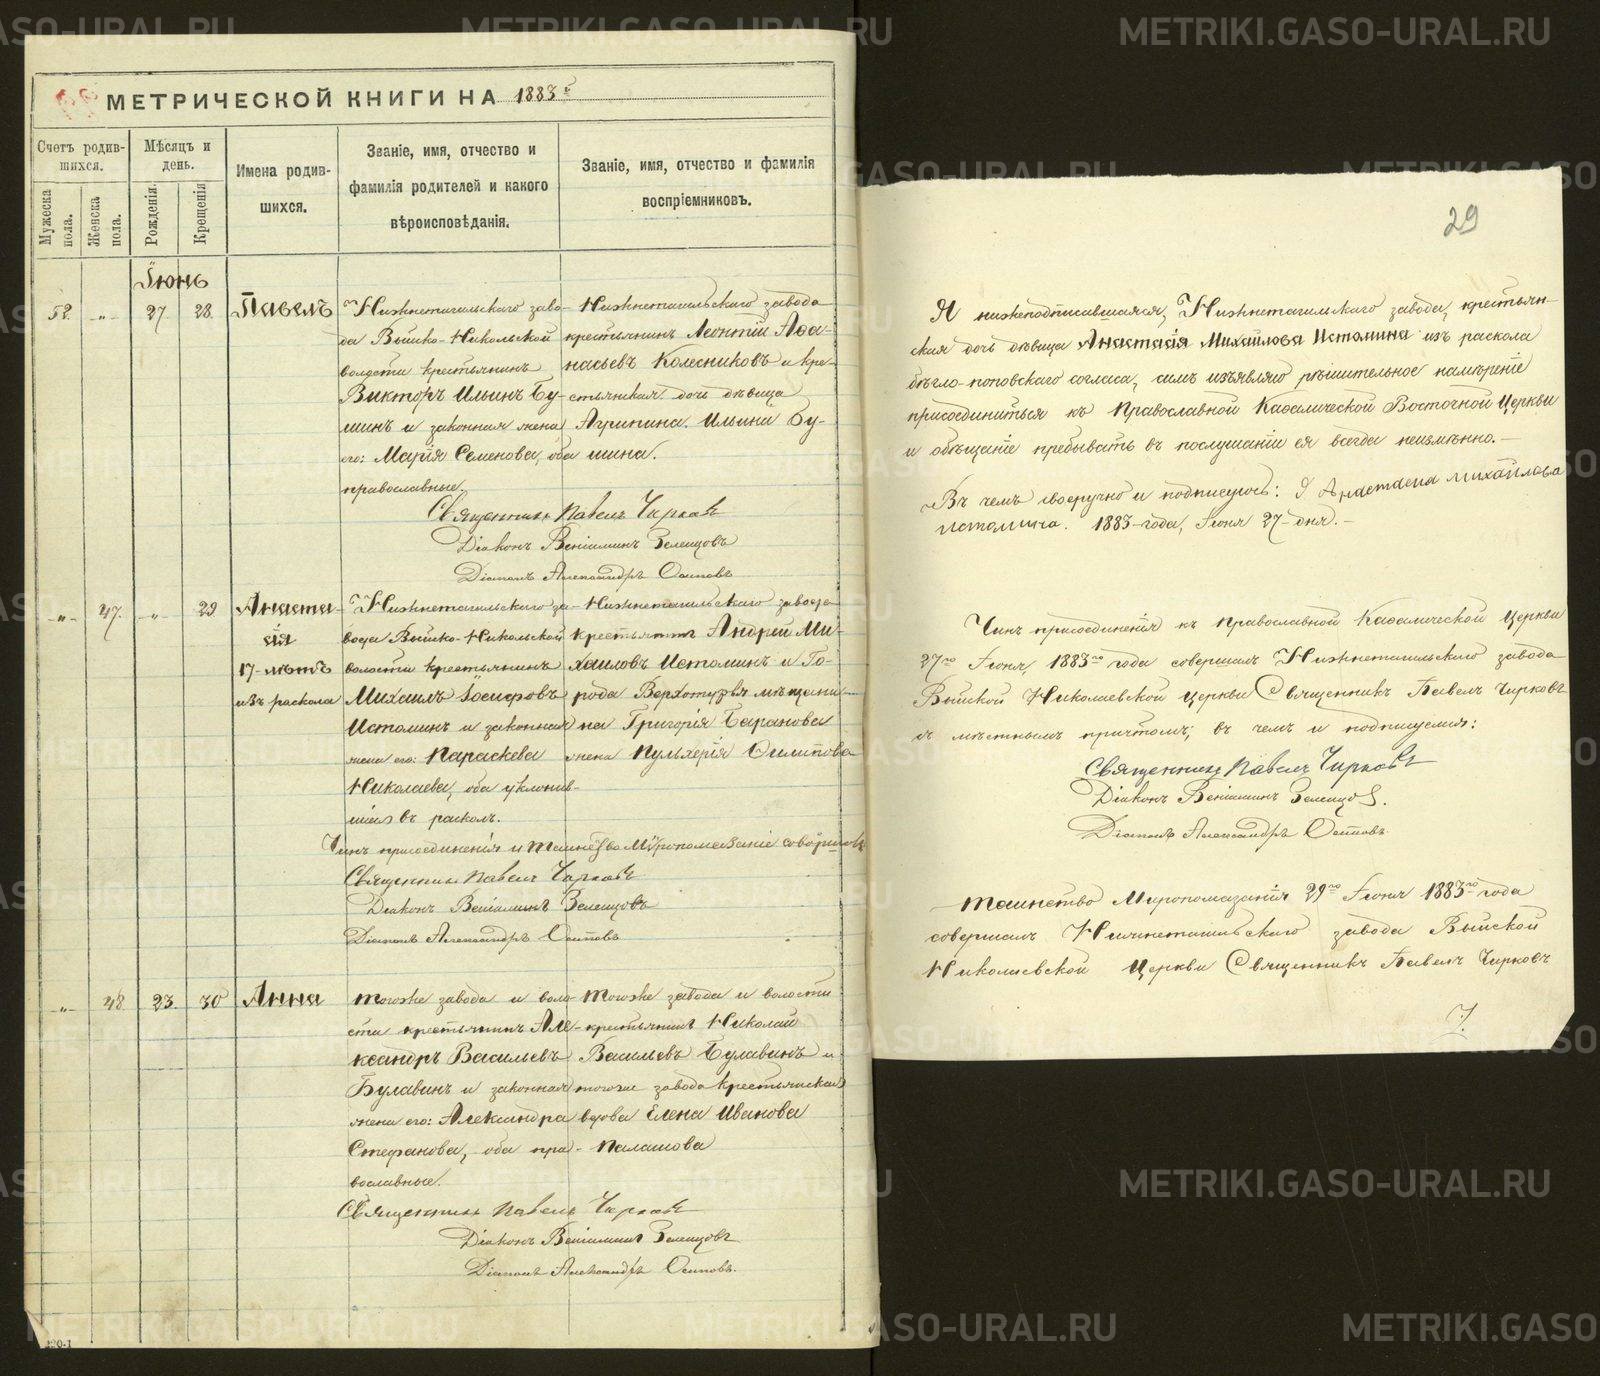 МЕТРИЧЕСКОЙ КНИГИ НА 1883й
Счетъ родив-
шихся.
Мѣсяцъ и
день.
Мужеска
пола.
Женска
пола.
Рожденія.
Крещенія
Имена родив-
шихся.
Званіе, имя, отчество и
фамилія родителей и какого
вѣроисповѣданія.
Званіе, имя, отчество и фамилія
воспріемниковъ.
Іюнь
52. -„- 27 28. Павелъ
Нижнетагильскаго заво-
да Выйско-Никольской
волости крестьянинъ
Викторъ Ильинъ Бу-
шинъ и законная жена
его: Марія Семенова, оба
православные.
Нижнетагильскаго завода
крестьянинъ Леонтій Аѳа-
насьевъ Колесниковъ и кре-
стьянская дочь дѣвица
Агрипина Ильина Бу-
шина.
Священникъ Павелъ Чирковъ
Діаконъ Веніаминъ Зеленцовъ
Діаконъ Александръ Осиповъ
-„- 47. -„- 29 Анаста-
сія
17-лѣтъ
изъ раскола
Нижнетагильскаго за-
вода Выйско-Никольской
волости крестьянинъ
Михаилъ Іосифовъ
Истоминъ и законная
жена его: Параскева
Николаева, оба уклонив-
шіяся въ расколъ.
Нижнетагильскаго завода
крестьянинъ Андрей Ми-
хаиловъ Истоминъ и Го-
рода Верхотурья мѣщани-
на Григорія Баранова
жена Пульхерія Филипова
Чинъ присоединенія и таинство Мѵропомазаніе совершилъ
Священникъ Павелъ Чирковъ
Діаконъ Веніаминъ Зеленцовъ
Діаконъ Александръ Осиповъ
-„- 48. 23. 30 Анна
Тогоже завода и воло-
сти крестьянинъ Але-
ксандръ Васильевъ
Булавинъ и законная
жена его: Александра
Стефанова, оба пра-
вославные.
Тогоже завода и волости
крестьянинъ Николай
Васильевъ Булавинъ и
тогоже завода крестьянская
вдова Елена Иванова
Палашова
Священникъ Павелъ Чирковъ
Діаконъ Веніаминъ Зеленцовъ
Діаконъ Александръ Осиповъ.
29
Я нижеподписавшаяся, Нижнетагильскаго завода, крестьян-
ская дочь дѣвица Анастасія Михайлова Истомина изъ раскола
бѣгло-поповскаго согласа, симъ изъявляю рѣшительное намѣреніе
присоединиться къ Православной Каѳолической Восточной Церкви
и обѣщаніе пребывать въ послушаніи ея всегда неизмѣнно.-
Въ чемъ своеручно и подписуюсь: Я Анастасиа Михайлова
Истомина. 1883-года, Іюня 27-дня.-
Чинъ присоединенія къ Православной Каѳолической Церкви
27го Іюня 1883го года совершалъ Нижнетагильскаго завода
Выйской Николаевской Церкви Священникъ Павелъ Чирковъ
съ мѣстнымъ причтомъ; въ чемъ и подписуемся:
Священникъ Павелъ Чирковъ
Діаконъ Веніаминъ Зеленцовъ.
Діаконъ Александръ Осиповъ.
Таинство Миропомазанія 29го Іюня 1883го года
совершалъ Нижнетагильскаго завода Выйской
Николаевской Церкви Священникъ Павелъ Чирковъ
METRIKI.GASO-URAL.RU